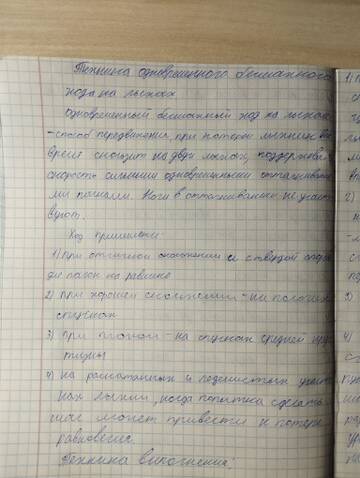 Техника одновременного бесшажного
хода на лыжах
одновременный бесшажный ход на лыжах
-способ передвижения, при котором лыжник всё
время скользит на двух лыжах, поддерживая
скорость сильными одновременными отталкивани
ми палками. Ноги в отталкивании не участ
вуют.
Ход применяют:
1) при отличном скольжении и твёрдой опоре
для палок на равнине
2) при хорошем скольжении - на пологих
спусках
3) при плохом - на спусках средней кру
тизны
4) на раскатанных и леденистых участ
ках лыжни, когда попытка сделать
шаг может привести к потере
равновесие
Техника выполнения:
1)
2)
3)
4)